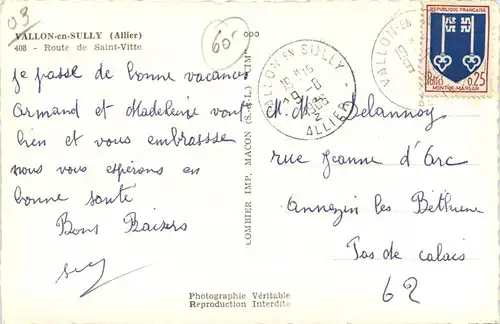 03
VALLON-en-SULLY (Allier)
408 - Route de Saint-Vitte
60
je passe de bonne vacances
Armand et Madeleine vont
bien et vous embrasse
nous vous espérons en
bonne santé
Bons Baisers
COMBIER IMP. MACON (S.-&-L.) "CIM"
VALLON EN SULLY
ALLIER
VALLON-EN
RÉPUBLIQUE FRANCAISE
Postes
0,25
MONT-DE-MARSAN
M. Mme Delannoy
rue Jeanne d'Arc
Annezin les Béthune
Pas de calais
62
Photographie Véritable
Reproduction Interdite